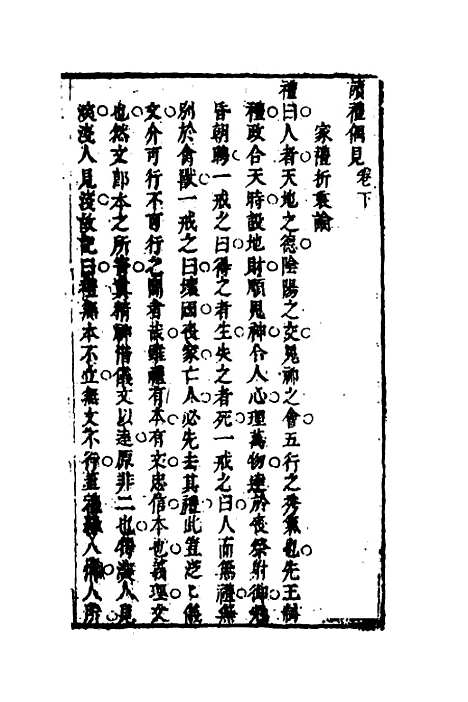 讀禮偶見卷下
家禮折衷論
禮曰人者天地之德陰陽之交鬼神之會五行之秀氣也先王制
禮政合天時設地財順鬼神合人心理萬物達於喪祭射御冠
昏朝聘一戒之曰得之者生失之者死一戒之曰人而無禮無
別於禽獸一戒之曰壞國喪家亡人必先去其禮此豈泛泛儀
文介可行不可行之閒者哉雖禮有本有文忠信本也義理文
也然文即本之所著其精神借儀文以達原非二也得淺人見
淡淺人見淺故記曰禮無本不立無文不行蓋人人所